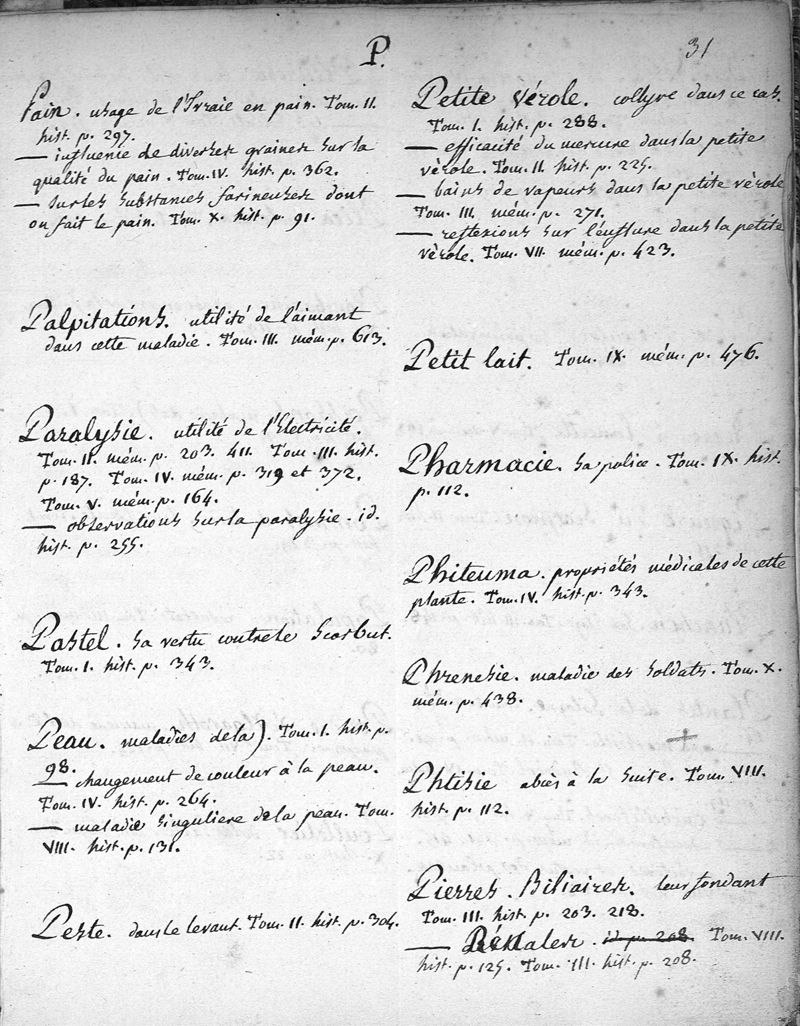 P.
31
Pain. usage de l'Ivraie en pain. Tom. II.
hist. p. 297.
— influence de diverses graines sur la
qualité du pain. Tom. IV. hist. p. 362.
— sur les substances farineuses dont
on fait le pain. Tom. X. hist. p. 91.
Palpitations. utilité de l'aimant
dans cette maladie. Tom. III. mém. p. 613.
Paralysie. utilité de l'Electricité.
Tom. II. mém. p. 203. 411. Tom. III. hist.
p. 187. Tom. IV. mém. p. 319 et 372.
Tom. V. mém. p. 164.
— observations sur la paralysie. id.
hist. p. 255.
Pastel. sa vertu contre le scorbut.
Tom. I. hist. p. 343.
Peau. maladies de la). Tom. I. hist. p.
98.
— changement de couleur à la peau.
Tom. IV. hist. p. 264.
— maladie singuliere de la peau. Tom.
VIII. hist. p. 131.
Peste. dans le levant. Tom. II. hist. p. 304.
Petite vérole. collyre dans ce cas.
Tom. I. hist. p. 288.
— efficacité du mercure dans la petite
vérole. Tom. II. hist. p. 225.
— bains de vapeurs dans la petite vérole
Tom. III. mém. p. 271.
— reflexions sur l'enflure dans la petite
vérole. Tom. VII. mém. p. 423.
Petit lait. Tom. IX. mém. p. 476.
Pharmacie. sa police. Tom. IX. hist.
p. 112.
Phiteuma. propriétés médicales de cette
plante. Tom. IV. hist. p. 343.
Phrenesie. maladie des soldats. Tom. X.
mém. p. 438.
Phtisie abcès à la suite. Tom. VIII.
hist. p. 112.
Pierres. Biliaires. leur fondant
Tom. III. hist. p. 203. 218.
— Rénales. id. p. 208 Tom. VIII.
hist. p. 125. Tom. III. hist. p. 208.